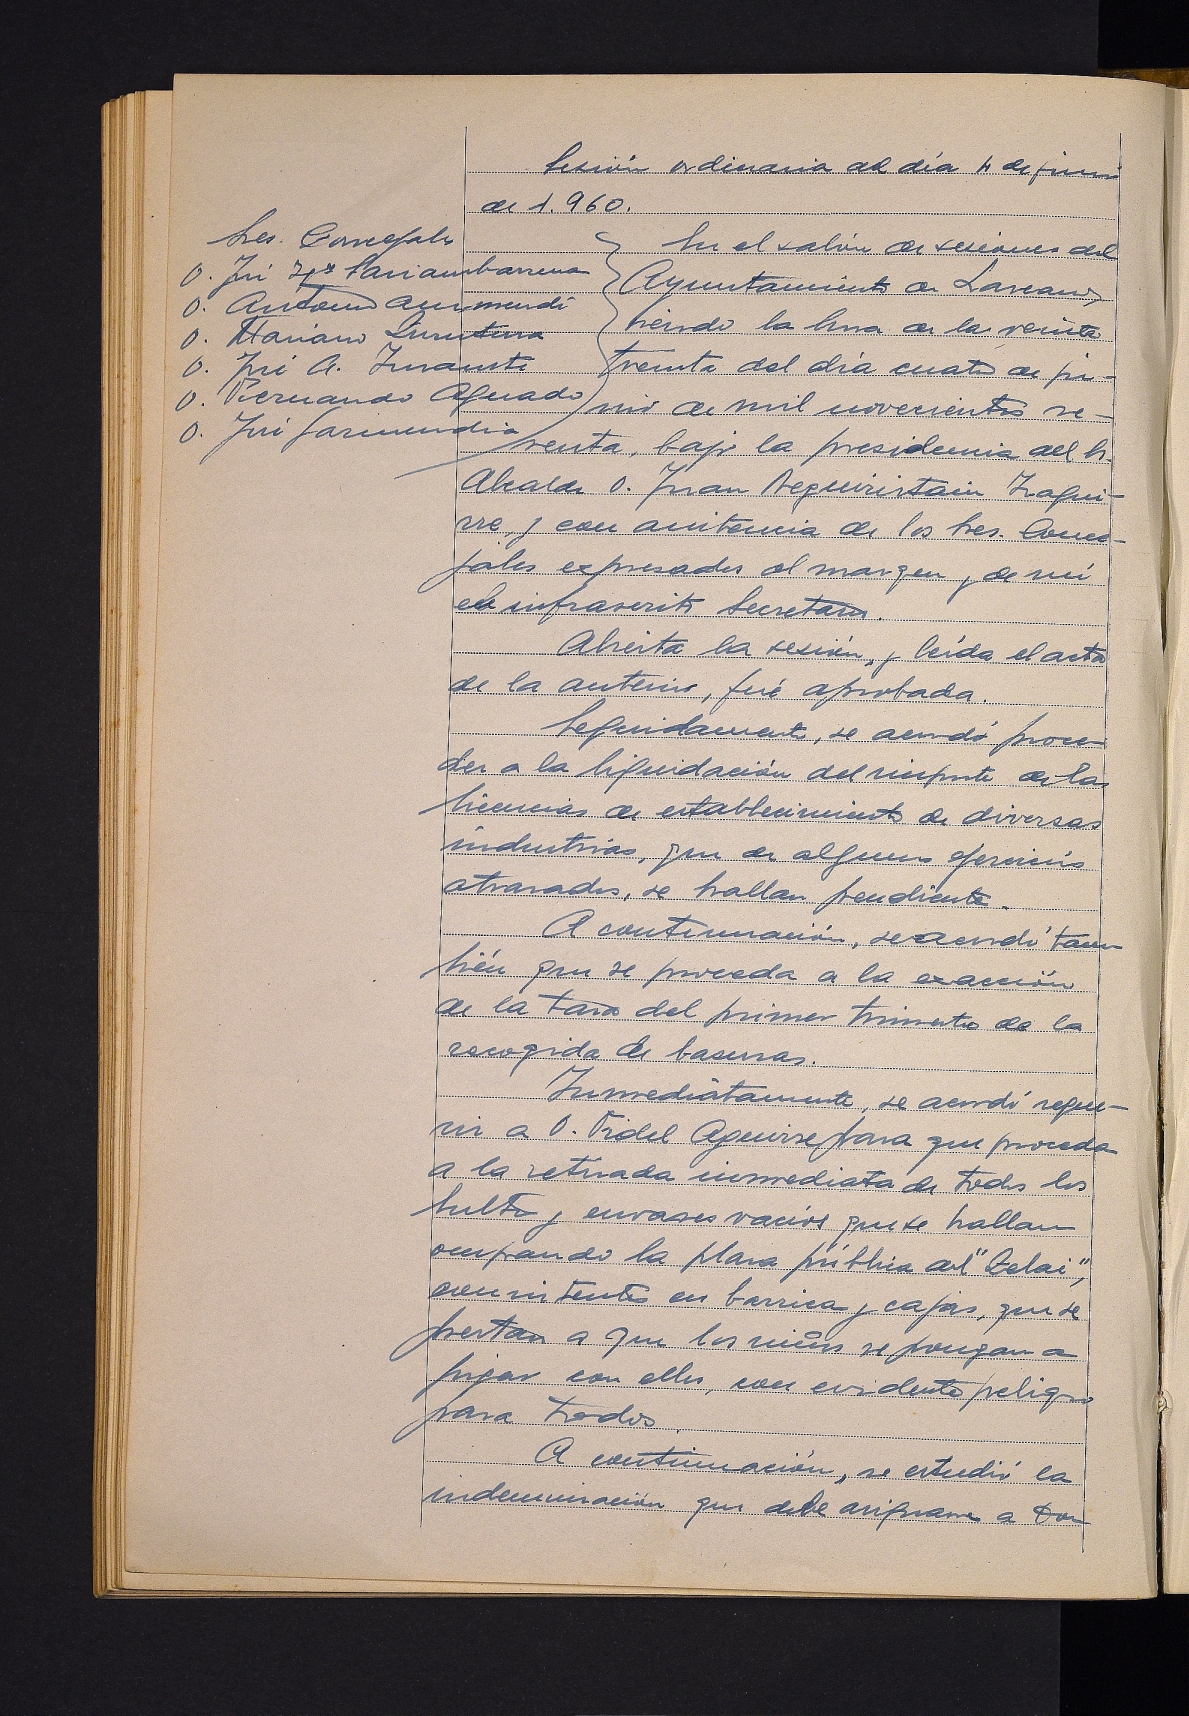 Sesión ordinaria del día 4 de junio
de 1.960.
Sres. Concejales
D. José Igº Sariambarrena
D. Antonio Aurmendi
D. Mariano
D. José A. Inausti
D. Fernando Aguado
D. José Garmendia
En el salón de sesiones del
Ayuntamiento de Lazcano,
siendo la hora de la veinte
treinta del día cuatro de ju-
nio de mil novecientos se-
senta, bajo la presidencia del Sr.
Alcalde D. Juan Aeguiristain Izagui-
rre, y con asistencia de los Sres. Conce-
jales expresados al margen, y de mí
el infrascrito Secretario.
Abierta la sesión, y leída el acta
de la anterior, fué aprobada.
Seguidamente, se acordó proce-
der a la liquidación del importe de las
licencias de establecimiento de diversas
industrias, que de algunos ejercicios
atrasados, se hallan pendiente.
A continuación, se acordó tam-
bién que se proceda a la exacción
de la tasa del primer trimestre de la
recogida de basuras.
Inmediatamente, se acordó reque-
rir a D. Fidel Aguirre para que proceda
a la retirada inmediata de todos los
bultos y envases vacíos que se hallan
ocupando la plaza pública del "Zelai",
consistentes en barricas y cajas, que se
prestan a que los niños se pongan a
jugar con ellos, con evidente peligro
para todos.
A continuación, se estudió la
indemnización que debe asignarse a Don